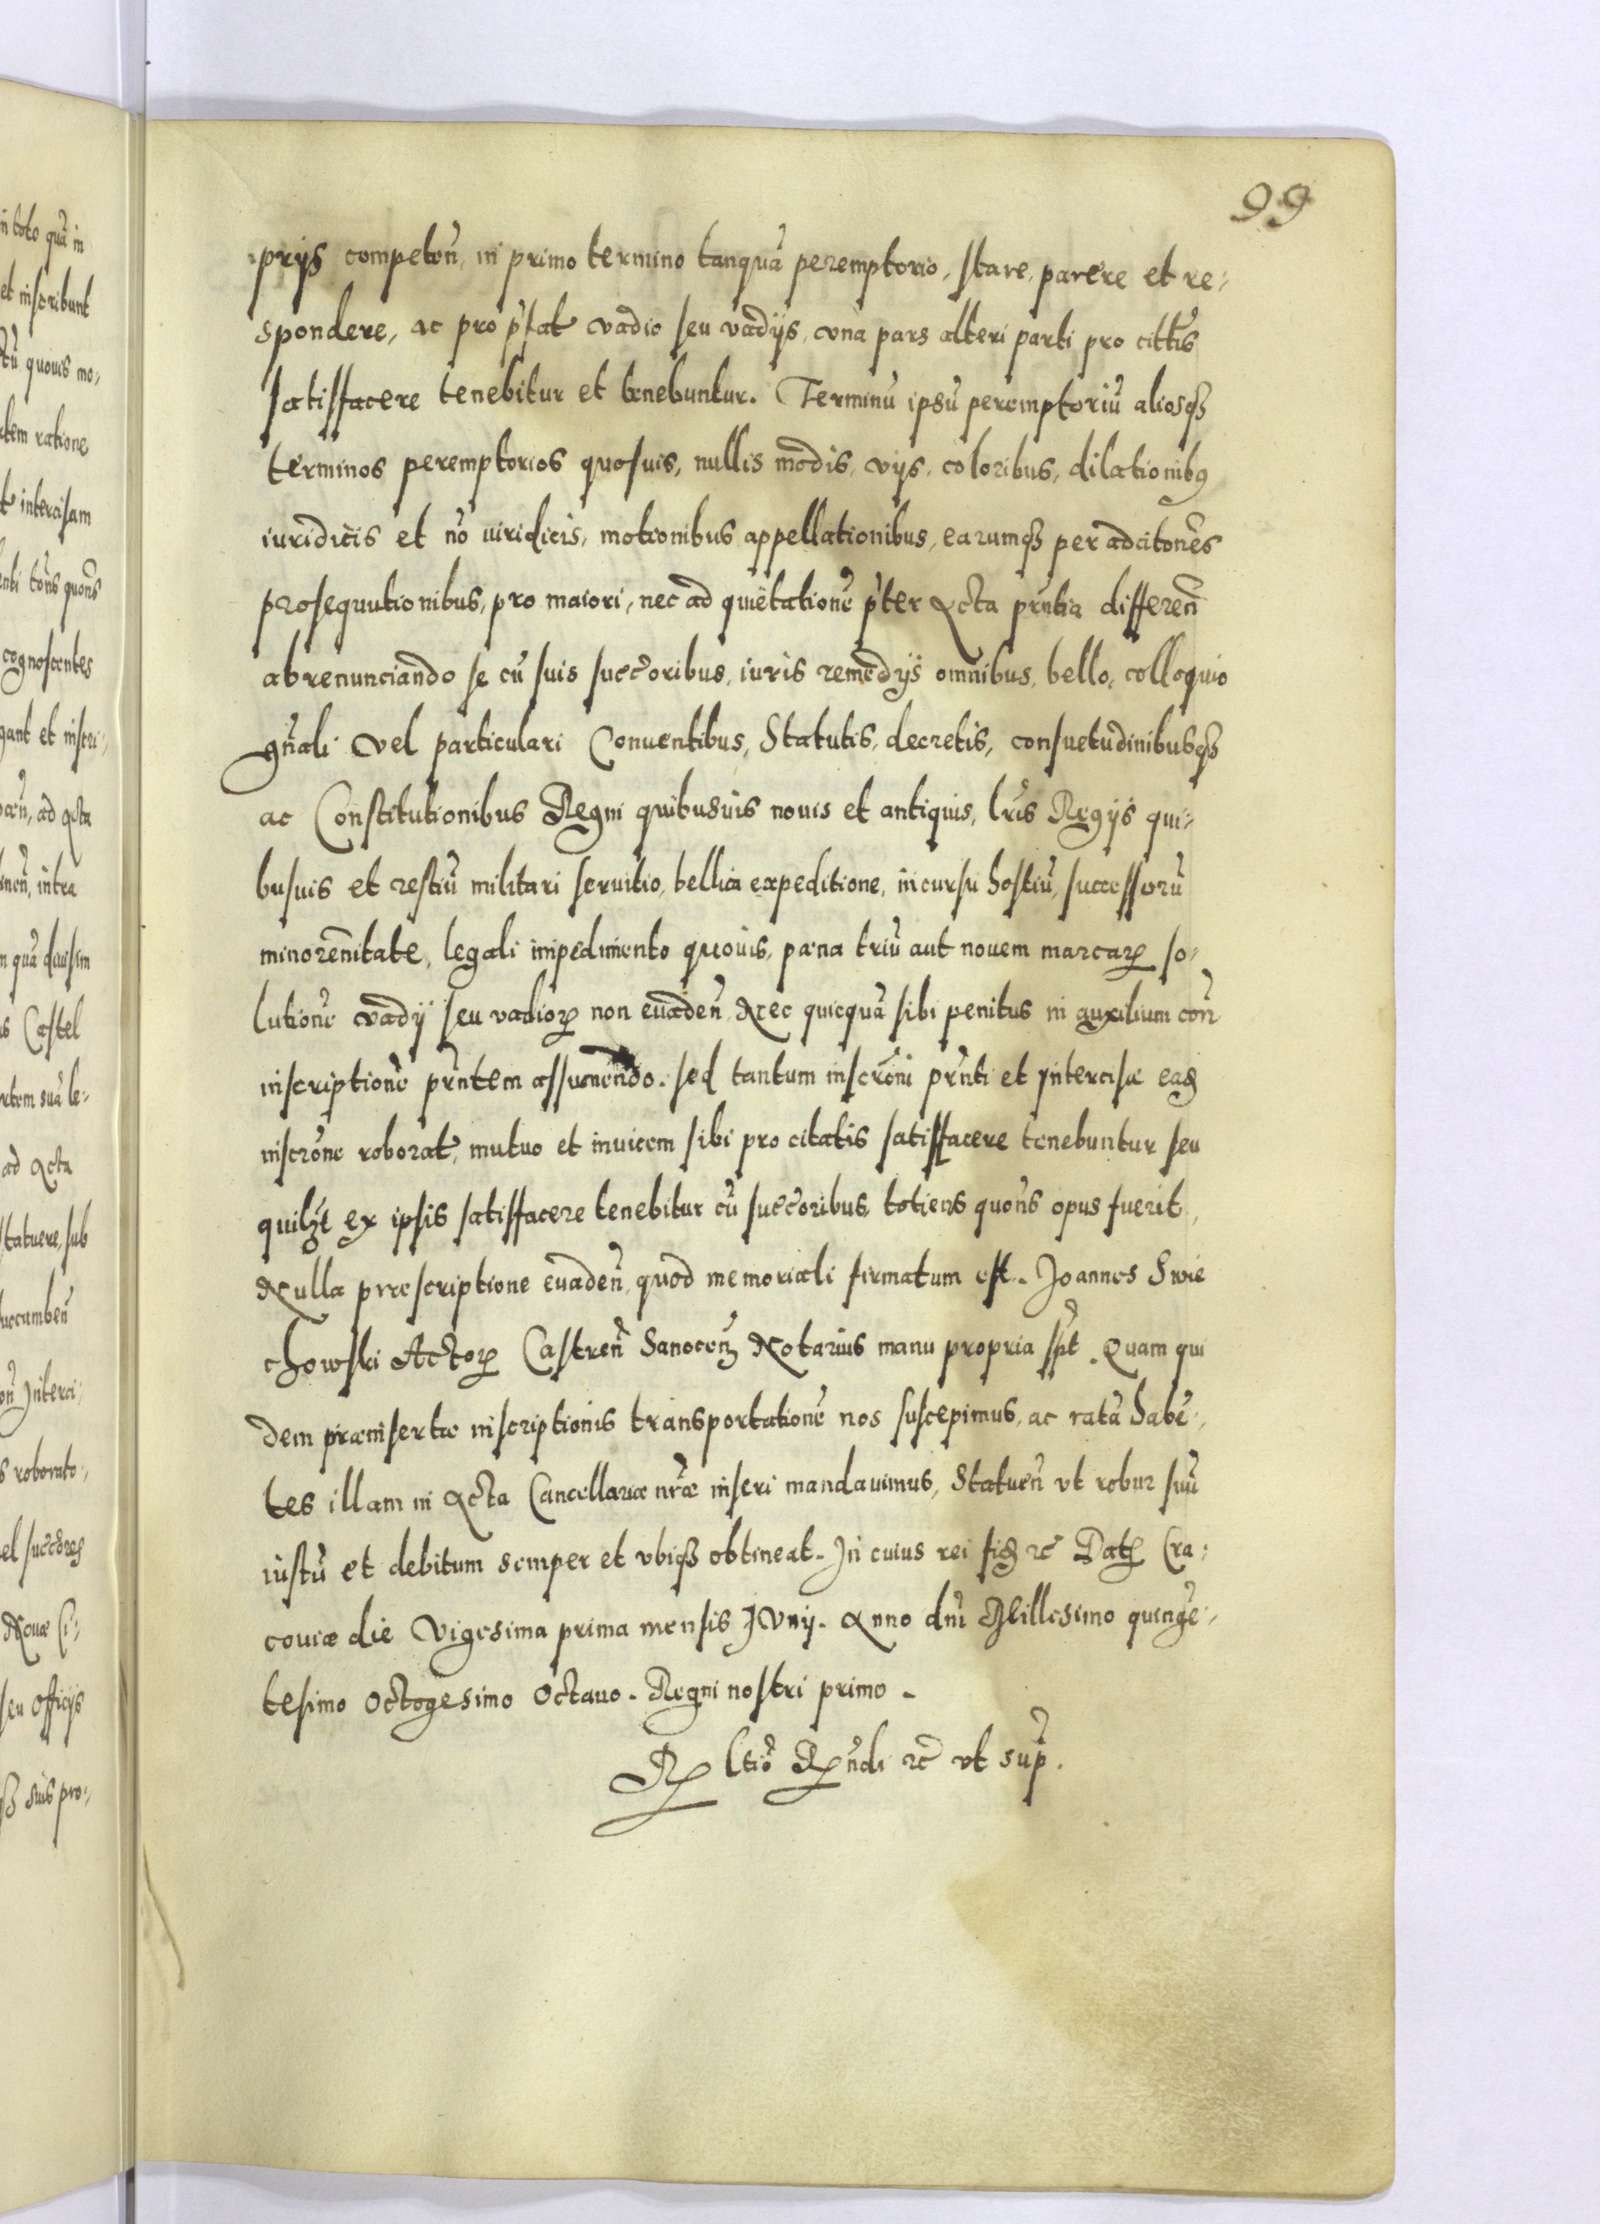 99
prijs competen̄, in primo termino tanquā peremptorio, stare, parere et re-
spondere, ac pro p̄fat vadio seu vadijs, vna pars alteri parti pro cittis
satisfacere tenebitur et tenebuntur. Terminū ipsū peremptoriū aliosq3
terminos peremptorios quosuis, nullis modis, vijs, coloribus, dilationibꝰ
iuridicis et nō iuridicis, motionibus appellationibus, earumq3 per adcitōnes
prosequutionibus, pro maiori, nec ad quietationē p̄ter Acta prn̄tia differen̄
abrenunciando se cū suis succ̄oribus, iuris remedijs omnibus, bello, colloquio
gn̄ali vel particulari Conuentibus, Statutis, decretis, consuetudinibusq3
ac Constitutionibus Regni quibusuis nouis et antiquis, lr̄is Regijs qui-
busuis et restiū militari seruitio, bellica expeditione, incursu hostiū, successorū
minorennitate, legali impedimento quouis, pæna triū aut nouem marcarꝝ so-
lutionē vadij seu vadiorꝝ non euaden̄ Nec quicquā sibi penitus in auxilium con̄
inscriptionē prn̄tem assumendo. sed tantum inscrōni prn̄ti et Intercisæ ead
inscrōne roborat, mutuo et inuicem sibi pro citatis satisfacere tenebuntur seu
quilƷt ex ipsis satisfacere tenebitur cū succ̄oribus, totiens quon̄s opus fuerit,
Nulla præscriptione euaden̄, quod memoriali firmatum est. Joannes Swie
chowski Actorꝝ Castren̄ Sanocen̄ Notarius manu propria sp̄t. Quam qui
dem præinsertæ inscriptionis transportationē nos suscepimus, ac ratā habē-
tes illam in Acta Cancellariæ nr̄æ inseri mandauimus, Statuen̄ vt robur suū
iustū et debitum semper et vbiq3 obtineat. In cuius rei fid etc̄ Datꝭ Cra-
couiæ die Vigesima prima mensis Junij. Anno dn̄i Millesimo quingē-
tesimo Octogesimo Octauo. Regni nostri primo.
Rꝫ ltiō Rꝫndi etc̄ vt sup̄.